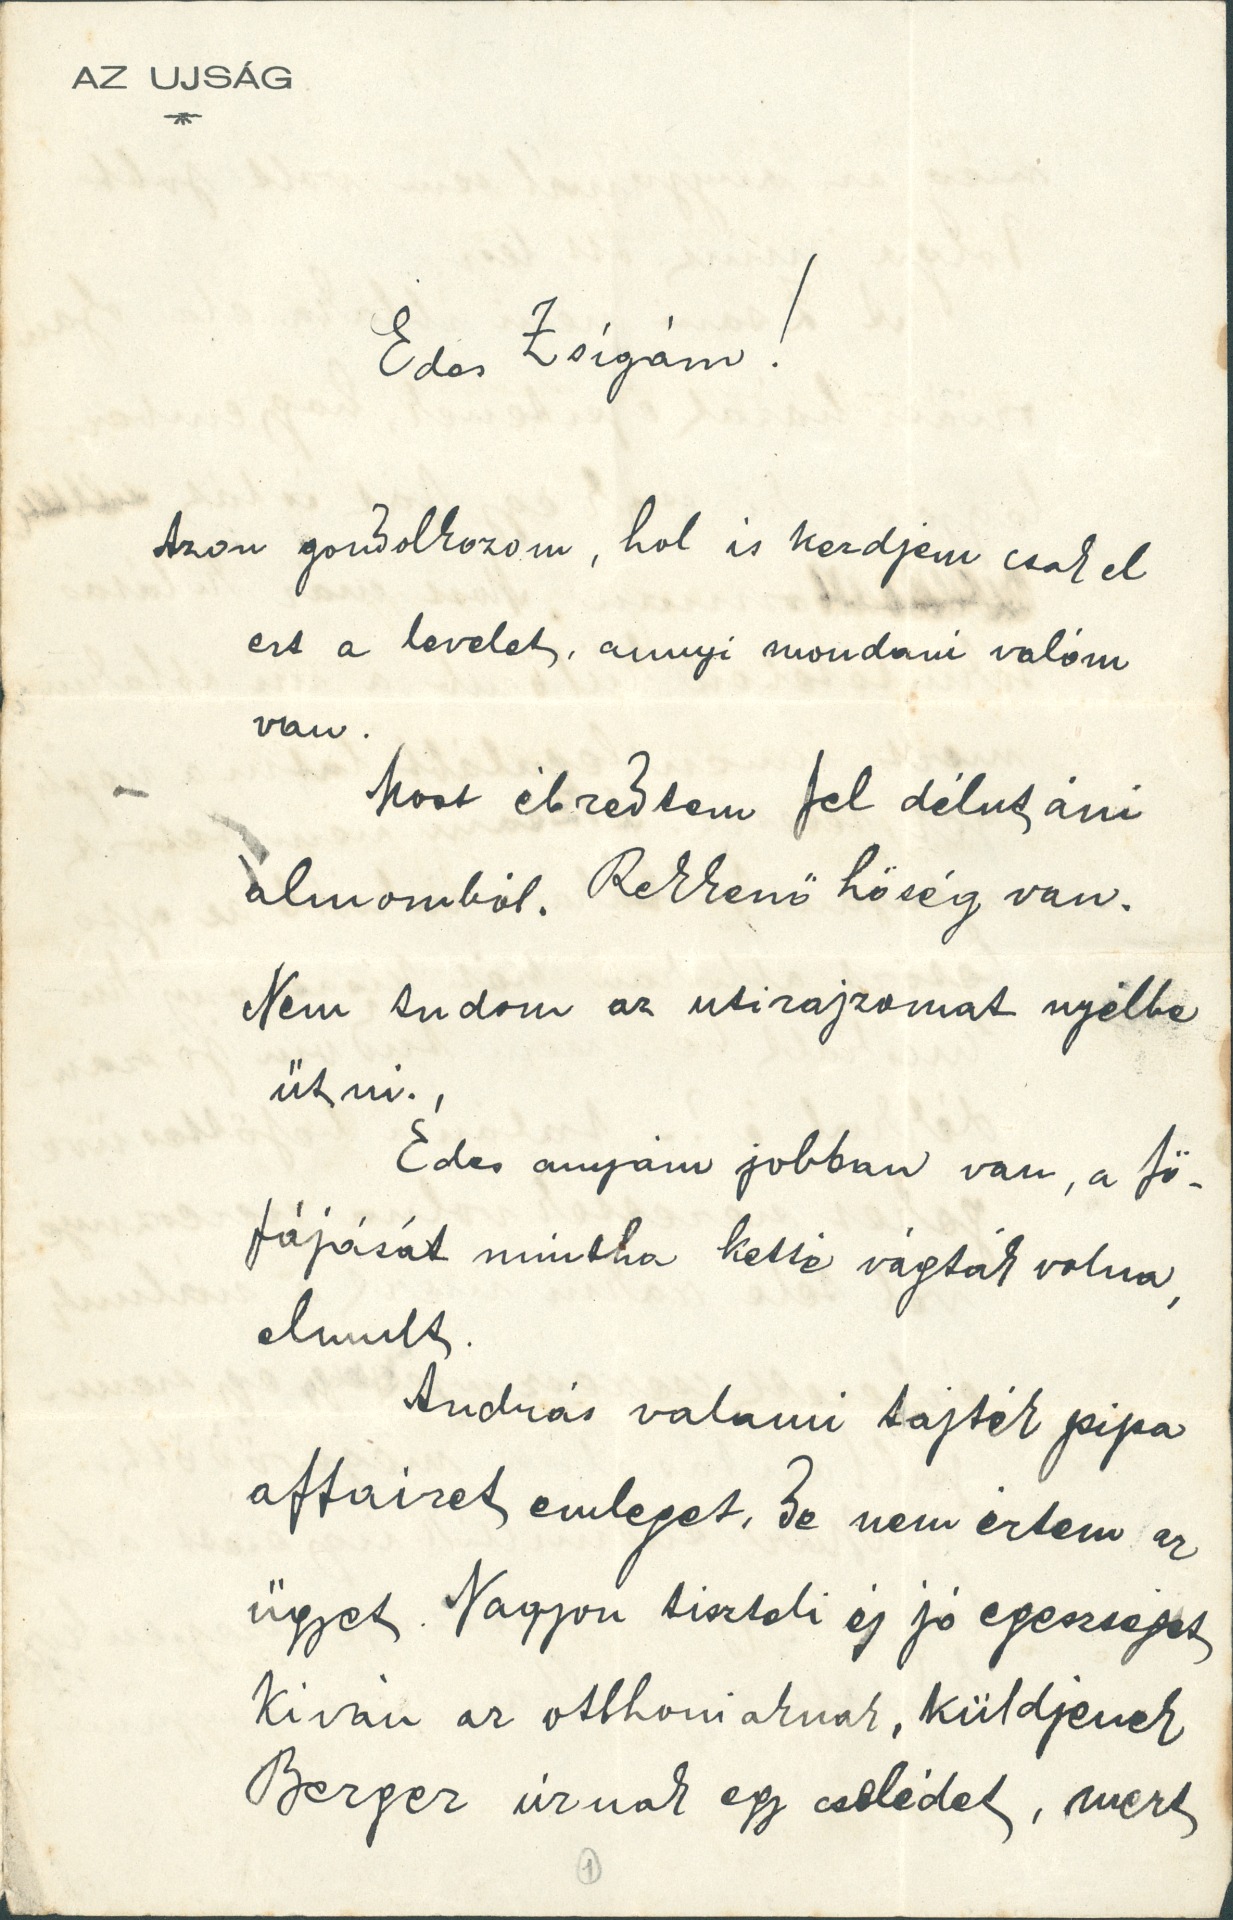 AZ UJSÁG
Edes Zsigám!
Azon gondolkozom, hol is kezdjem csak el
ezt a levelet, annyi mondani valóm
van.
Most ébredtem fel délutáni
álmomból. Rekkenő hőség van.
Nem tudom az utirajzomat nyélbe
ütni.,
Édes anyám jobban van, a fő-
fájását mintha ketté vágták volna,
elmult.
András valami tajték pipa
affairet emleget, de nem értem az
ügyet. Nagyon tiszteli és jó egeszséget
kiván az otthoniaknak, küldjenek
Berger úrnak egy cselédet, mert
1